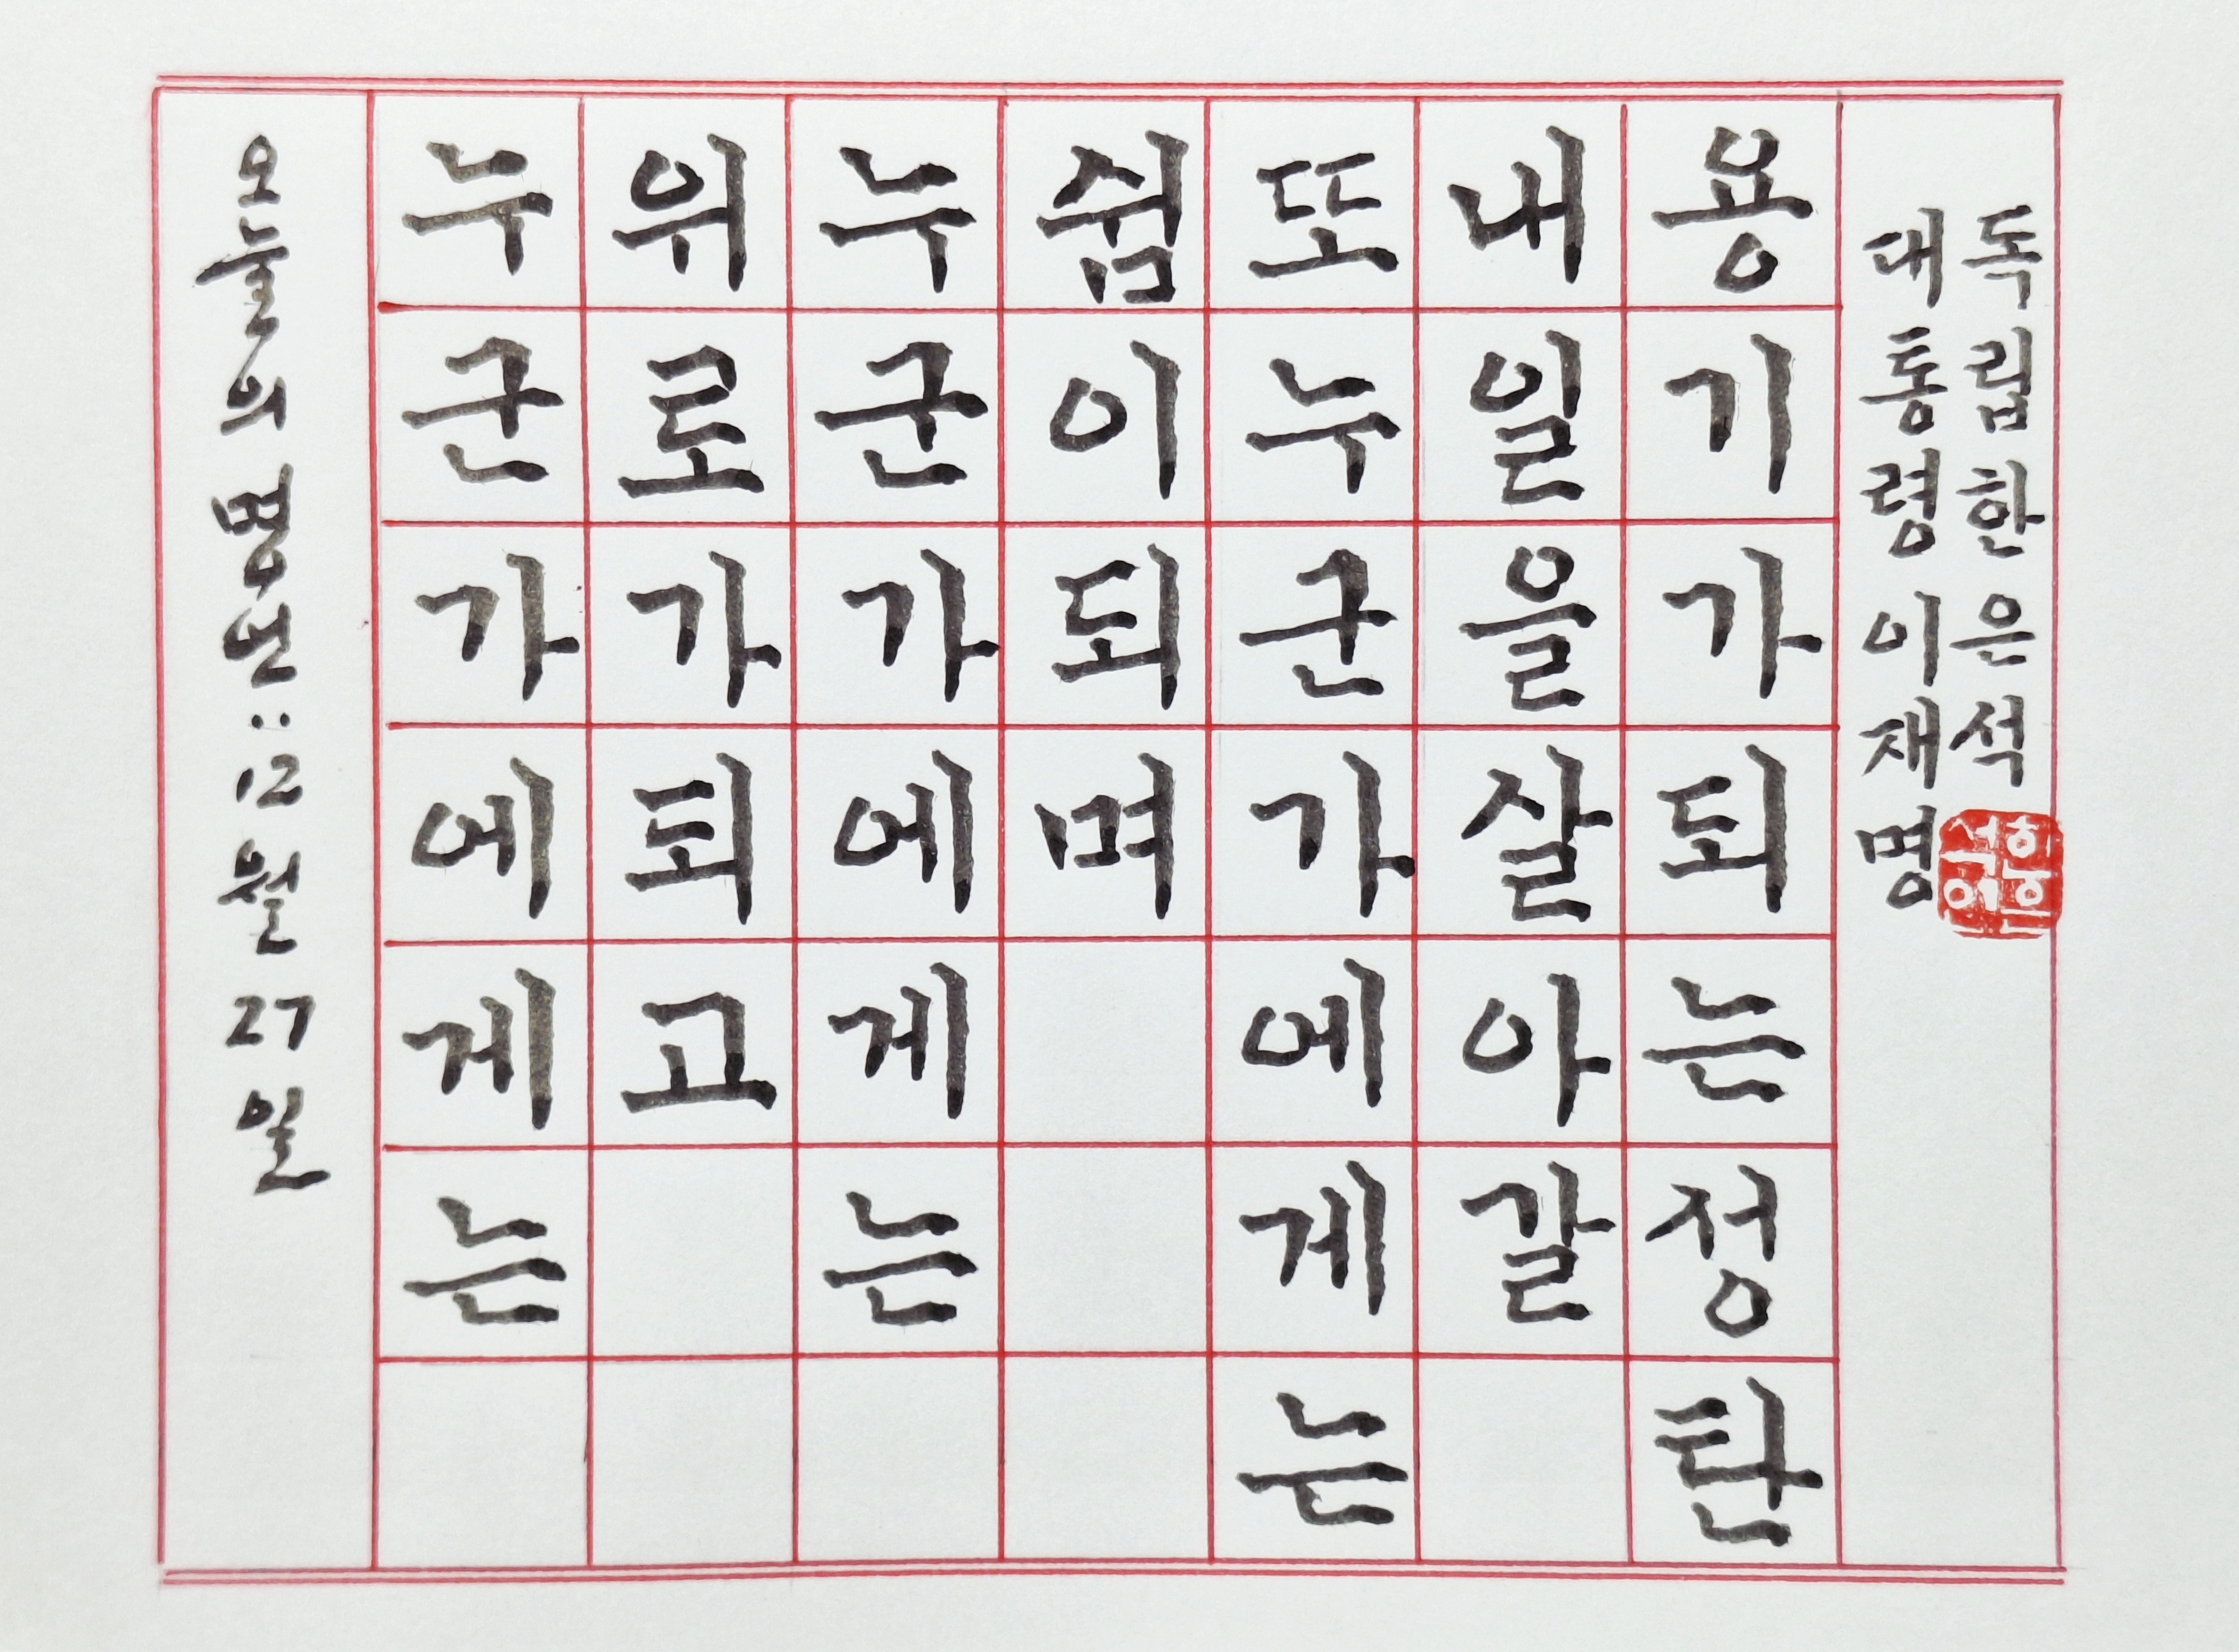 오늘의 명언 : 12월 27일
누군가에게는
위로가되고
누군가에게는
쉼이되며
또누군가에게는
내일을살아갈
용기가되는성탄
대통령 이재명
독립한 은석